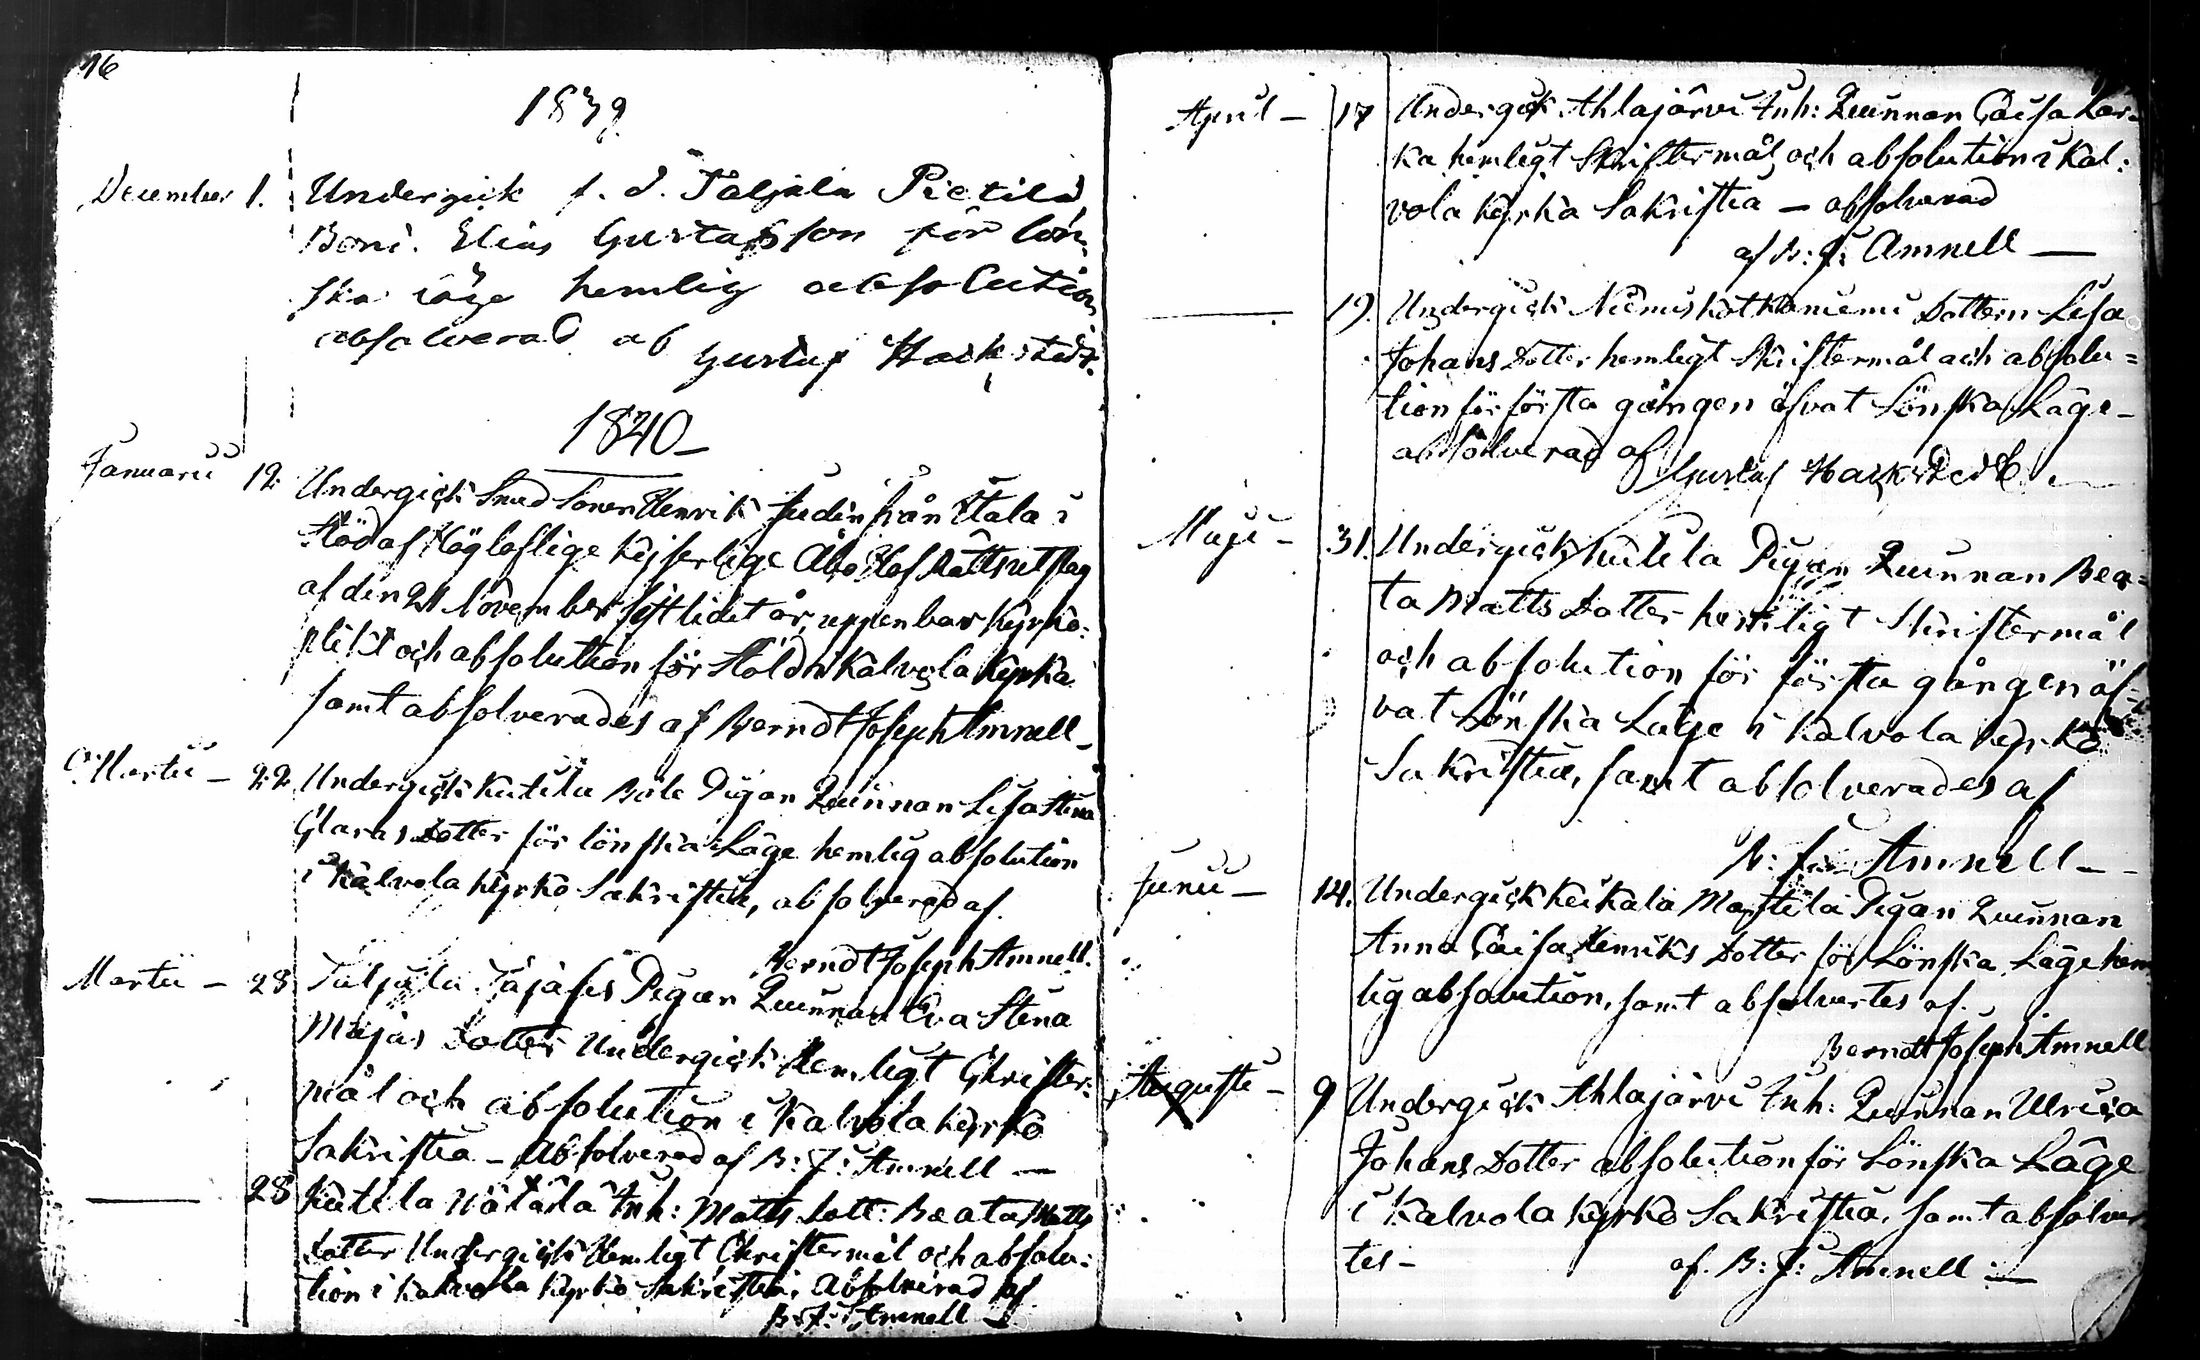 16
1839
December 1. Undergick f. d. Taljala Pietilä
Bond. Elias Gustafsson för lön-
ska läge hemlig absolution
absolverad af Gustaf Hackstedt.
1840
Januarii 12. Undergick Smed Sonen Henrik Judin från Itala i
stöd af Högloflige Kejserlige Åbo Hof Rätts utslag
af den 21 November sistlidet år, uppenbar Kyrko-
plikt och absolution för Stöld i Kalvola Kyrka
samt absolverades af Berndt Joseph Amnell
Martii - 22 Undergick Kutila Böle Pigan Quinnan Lisa Stina
Claras Dotter för lönska Läge hemlig absolution
i Kalvola Kyrko Sakristia, absolverad af.
Berndt Joseph Amnell.
Martii - 28 Taljala Jäjäfis Pigan Quinnan Eva Stina
Majas Dotter Undergick Hemligt Skrifter-
mål och absolution i Kalvola Kyrko
Sakristia - Absolverad af B: J: Amnell —
— 28 Kutila Inh: Matts Dott: Beata Matts
dotter Undergick Hemligt Skriftermål och absolu-
tion i Kalvola Kyrko Sakristia, Absolverad af
B: J: Amnell
April - 17 Undergick Ahlajärvi Inh: Quinnan Caisa Lar-
ka hemligt Skriftermål och absolution i Kal:
vola Kyrka Sakristia - absolverad
af B: J: Amnell —
— 19. Undergick Niemis Kotkaniemi Dottern Lisa
Johans Dotter hemligt Skriftermål och absolu=
tion för första gången öfvat Lönska Läge -
absolverad af Gustaf Hackstedt
Maji - 31. Undergick Kutila Pigan Quinnan Bea-
ta Matts Dotter hemligt Skriftermål
och absolution för första gången öf-
vat Lönska Läge i Kalvola Kyrko
Sakristia, samt absolverades af
B: J: Amnell -
Junii - 14. Undergick Keikala Marttila Pigan Quinnan
Anna Caisa Henriks Dotter för Lönska Läge hem
lig absolution, samt absolvertes af.
Berndt Joseph Amnell
Augusti - 9 Undergick Ahlajärvi Inh: Quinnan Ulrica
Johans Dotter absolution för Lönska Läge
i Kalvola Kyrko Sakristia, samt absolver
tes - af. B: J: Amnell —